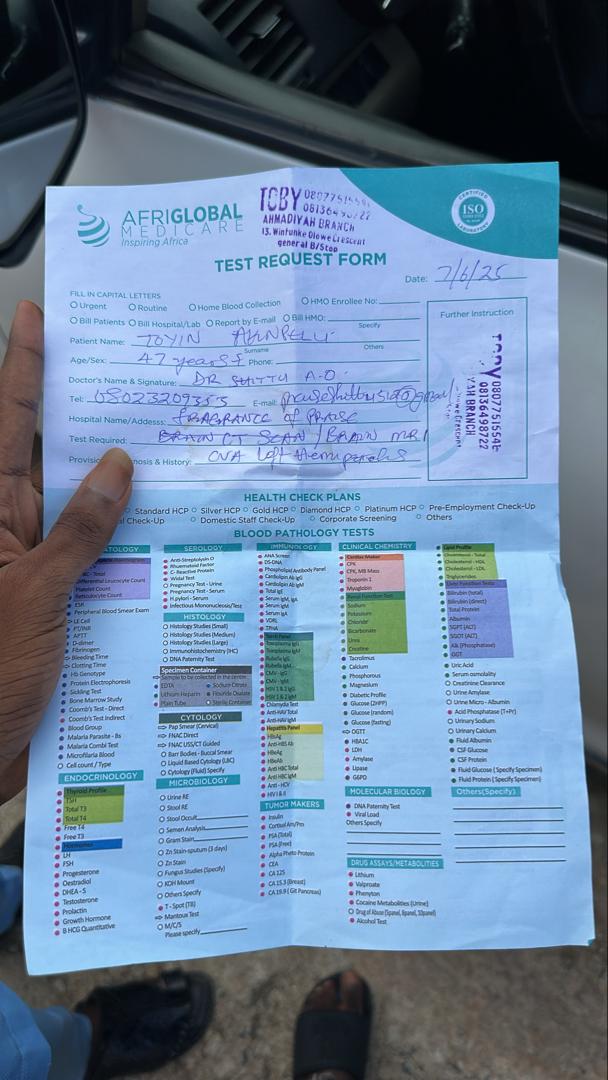 AFRIGLOBAL
MEDICARE
Inspiring Africa
TOBY
AHMADIYAH BRANCH
13, Wintunke Olowe Crescent
general B/Stop
CERTIFIED
ISO
LABORATORY
TEST REQUEST FORM
Date: 7/6/25
FILL IN CAPITAL LETTERS
Urgent Routine Home Blood Collection HMO Enrollee No:
Bill Patients Bill Hospital/Lab Report by E-mail Bill HMO:
Specify
Patient Name: TOYIN
Surname Others
Age/Sex: 47 years f Phone:
Doctor's Name & Signature: DR SHITTU A.O.
Tel: E-mail:
Hospital Name/Address: FRAGRANCE OF PRAISE
Test Required: BRAIN CT SCAN / BRAIN MRI
nosis & History: CVA Left Hemiparesis
Further Instruction
TOBY 08077515546
08136498722
YAH BRANCH
Olowe Crescent
HEALTH CHECK PLANS
Standard HCP Silver HCP Gold HCP Diamond HCP Platinum HCP Pre-Employment Check-Up
al Check-Up Domestic Staff Check-Up Corporate Screening Others
BLOOD PATHOLOGY TESTS
ATOLOGY
Differential Leukocyte Count
Platelet Count
Reticulocyte Count
ESR
Peripheral Blood Smear Exam
LE Cell
PT/INR
APTT
D-dimer
Fibrinogen
Bleeding Time
Clotting Time
Hb Genotype
Protein Electrophoresis
Sickling Test
Bone Marrow Study
Coomb's Test - Direct
Coomb's Test Indirect
Blood Group
Malaria Parasite - Bs
Malaria Combi Test
Microfilaria Blood
Cell count / Type
ENDOCRINOLOGY
Thyroid Profile
TSH
Total T3
Total T4
Free T4
Free T3
Hormones
LH
FSH
Progesterone
Oestradiol
DHEA - S
Testosterone
Prolactin
Growth Hormone
B HCG Quantitative
SEROLOGY
Anti-Streptolysin O
Rheumatoid Factor
C- Reactive Protein
Widal Test
Pregnancy Test - Urine
Pregnancy Test - Serum
H. pylori - Serum
Infectious Mononucleosis/Test
HISTOLOGY
Histology Studies (Small)
Histology Studies (Medium)
Histology Studies (Large)
Immunohistochemistry (IHC)
DNA Paternity Test
Specimen Container
Sample to be collected in the centre
EDTA Sodium Citrate
Lithium Heparin Flouride Oxalate
Plain Tube Sterile Container
CYTOLOGY
Pap Smear (Cervical)
FNAC Direct
FNAC USS/CT Guided
Barr Bodies - Buccal Smear
Liquid Based Cytology (LBC)
Cytology (Fluid) Specify
MICROBIOLOGY
Urine RE
Stool RE
Stool Occult
Semen Analysis
Gram Stain
Zn Stain-sputum (3 days)
Zn Stain
Fungus Studies (Specify)
KOH Mount
Others Specify
T - Spot (TB)
Mantoux Test
M/C/S
Please specify
IMMUNOLOGY
ANA Screen
DS-DNA
Phospholipid Antibody Panel
Cardiolipin Ab IgG
Cardiolipin Ab IgM
Total IgE
Serum IgM, IgA
Serum IgM
Serum IgA
VDRL
TPHA
Toxoplasma IgG
Toxoplasma IgM
Rubella IgG
Rubella IgM
CMV - IgG
CMV - IgM
HIV 1 & 2 IgG
HIV 1 & 2 IgM
Chlamydia Test
Anti-HAV Total
Anti-HAV IgM
Hepatitis Panel
HBsAg
Anti-HBS Ab
HBeAg
HBeAb
Anti HBC Total
Anti HBC IgM
Anti - HCV
HIV I & II
TUMOR MAKERS
Insulin
Cortisol Am/Pm
PSA (Total)
PSA (Free)
Alpha Pheto Protein
CEA
CA 125
CA 15.3 (Breast)
CA 19.9 ( Git Pancreas)
CLINICAL CHEMISTRY
Cardiac Maker
CPK
CPK, MB Mass
Troponin 1
Myoglobin
Renal Function Test
Sodium
Potassium
Chloride
Bicarbonate
Urea
Creatine
Tacrolimus
Calcium
Phosphorus
Magnesium
Diabetic Profile
Glucose (2HPP)
Glucose (random)
Glucose (fasting)
OGTT
HBA1C
LDH
Amylase
Lipase
G6PD
MOLECULAR BIOLOGY
DNA Paternity Test
Viral Load
Others Specify
DRUG ASSAYS/METABOLITIES
Lithium
Valproate
Phenyton
Cocaine Metabolities (Urine)
Drug of Abuse (5panel, 8panel, 10panel)
Alcohol Test
Lipid Profile
Cholesterol - Total
Cholesterol - HDL
Cholesterol - LDL
Triglycerides
Liver Function Tests
Bilirubin (total)
Bilirubin (direct)
Total Protein
Albumin
SGPT (ALT)
SGOT (ALT)
Alk (Phosphatase)
GGT
Uric Acid
Serum osmolality
Creatinine Clearance
Urine Amylase
Urine Micro - Albumin
Acid Phosphatase (T+Pr)
Urinary Sodium
Urinary Calcium
Fluid Albumin
CSF-Glucose
CSF Protein
Fluid Glucose ( Specify Specimen)
Fluid Protein ( Specify Specimen)
Others(Specify)